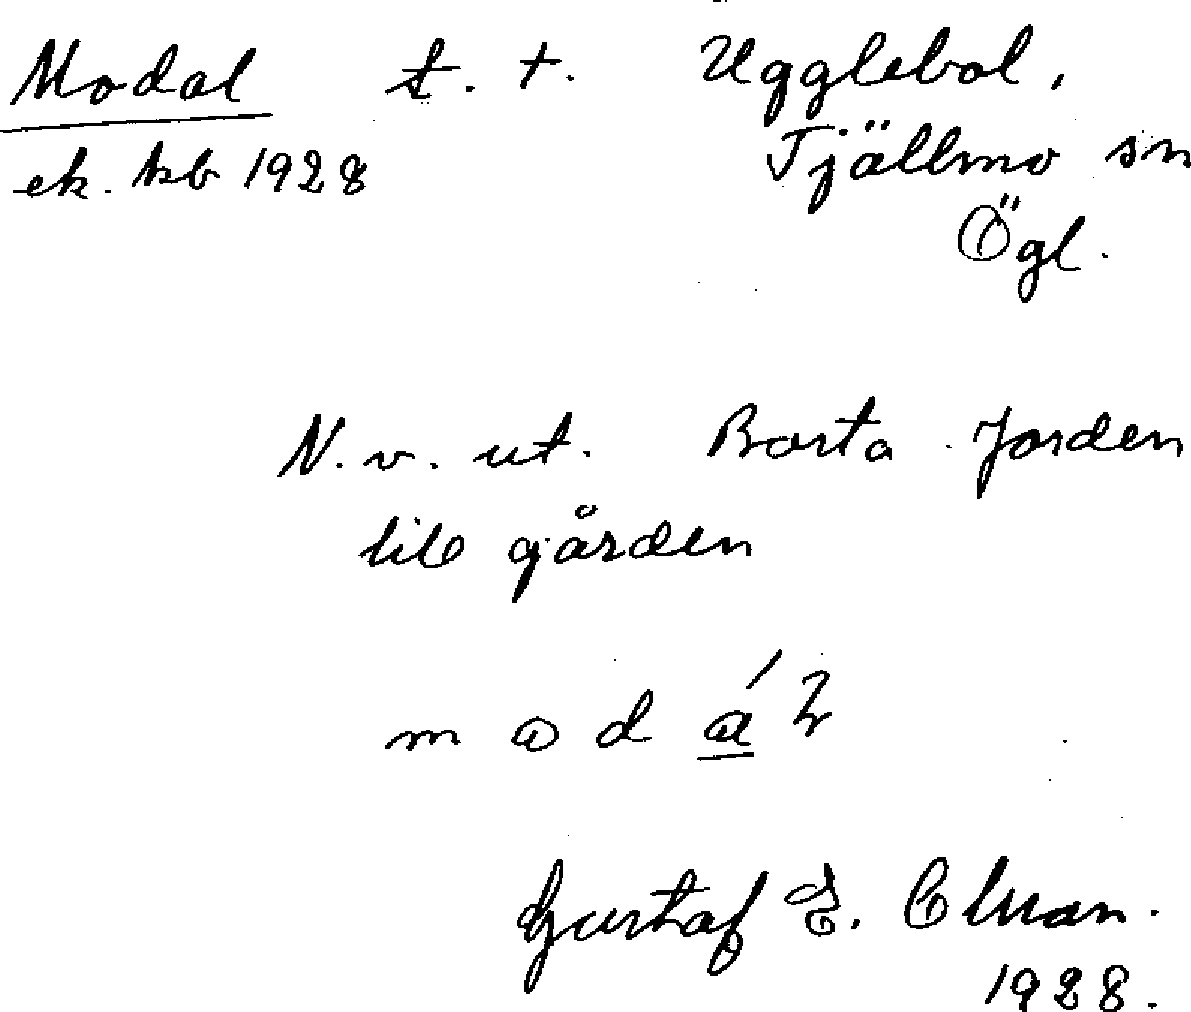 Modal t. t. Ugglebol,
ek. kb 1928 Tjällmo sn
Ögl.
N. v. ut. Borta Jorden
till gården
Gustaf E.
1928.